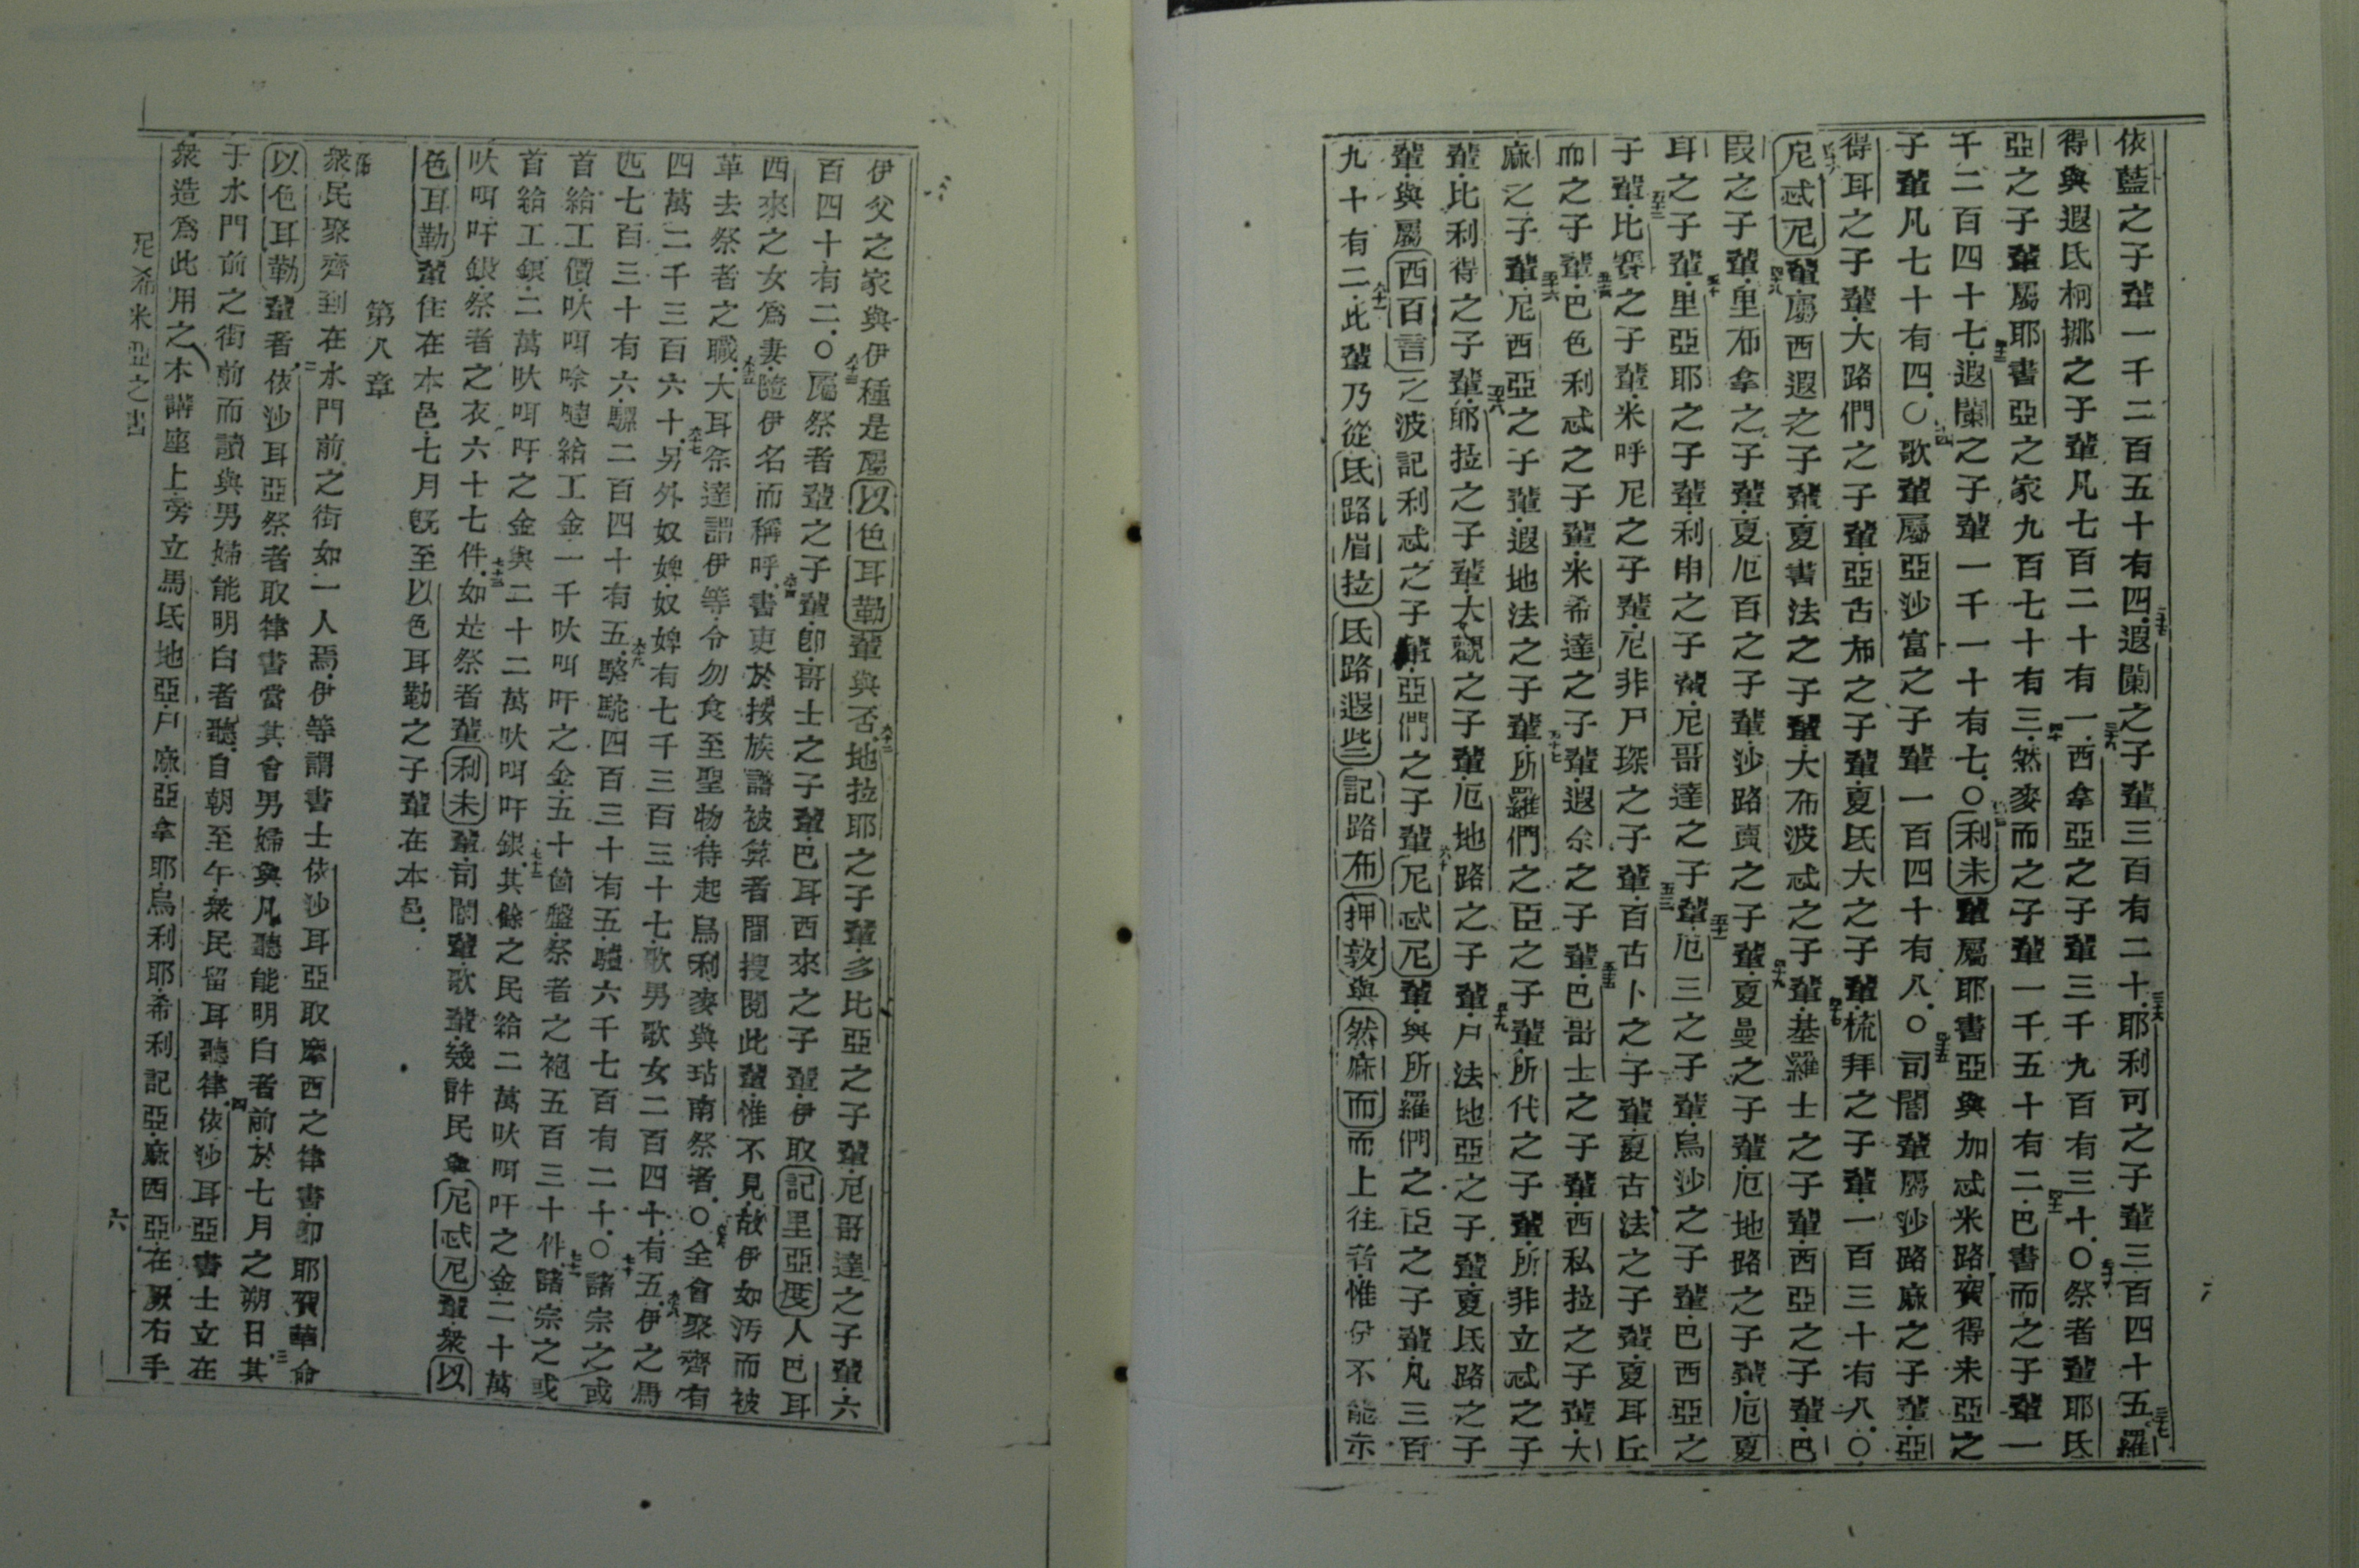 依藍之子輩一千二百五十有四遐闌之子輩三百有二十耶利可之子輩三百四十五羅
得與遐氐柯挪之子輩凡七百二十有一西拿亞之子輩三千九百有三十〇祭者輩耶氐
亞之子輩屬耶書亞之家九百七十有三然麥而之子輩一千五十有二巴書而之子輩一
千二百四十七遐闌之子輩一千一十有七〇利未輩屬耶書亞與加忒米路賀得未亞之
子輩凡七十有四〇歌輩屬亞沙富之子輩一百四十有八〇司閽輩屬沙路麻之子輩亞
得耳之子輩大路們之子輩亞古布之子輩夏氐大之子輩梳拜之子輩一百三十有八〇
尼忒尼輩屬西遐之子輩夏書法之子輩大布波忒之子輩基羅士之子輩西亞之子輩巴
段之子輩里布拿之子輩夏厄百之子輩沙路賣之子輩夏曼之子輩厄地路之子輩厄夏
耳之子輩里亞耶之子輩利申之子輩尼哥達之子輩厄三之子輩烏沙之子輩巴西亞之
子輩比賽之子輩米呼尼之子輩尼非尸琛之子輩百古卜之子輩夏古法之子輩夏耳丘
而之子輩巴色利忒之子輩米希達之子輩遐尒之子輩巴哥士之子輩西私拉之子輩大
麻之子輩尼西亞之子輩遐地法之子輩所羅們之臣之子輩所代之子輩所非立忒之子
輩比利得之子輩郎拉之子輩大觀之子輩厄地路之子輩尸法地亞之子輩夏氐路之子
輩與屬西百言之波記利忒之子輩亞們之子輩尼忒尼輩與所羅們之臣之子輩凡三百
九十有二此輩乃從氐路眉拉氐路遐些記路布押敦與然麻而而上往者惟伊不能示
伊父之家與伊種是屬以色耳勒輩與否地拉耶之子輩多比亞之子輩尼哥達之子輩六
百四十有二〇屬祭者輩之子輩卽哥士之子輩巴耳西來之子輩伊取記里亞度人巴耳
西來之女爲妻隨伊名而稱呼書吏於按族譜被算者間搜閱此輩惟不見故伊如汚而被
革去祭者之職大耳祭達謂伊等令勿食至聖物待起烏利麥與玷南祭者〇全會聚齊有
四萬二千三百六十另外奴婢奴婢有七千三百三十七歌男歌女二百四十有五伊之馬
匹七百三十有六騾二百四十有五駱駝四百三十有五驢六千七百有二十〇諸宗之或
首給工價㕭呌唋噠給工金一千㕭呌吁之金五十箇盤祭者之袍五百三十件諸宗之或
首給工銀二萬㕭呌吁之金與二十二萬㕭呌吁銀其餘之民給二萬㕭呌吁之金二十萬
㕭呌吁銀祭者之衣六十七件如此祭者輩利未輩司閽輩歌輩幾許民與尼忒尼輩衆以
色耳勒輩住在本邑七月旣至以色耳勒之子輩在本邑
第八章
衆民聚齊到在水門前之街如一人焉伊等謂書士依沙耳亞取摩西之律書卽耶賀華命
以色耳勒輩者依沙耳亞祭者取律書當其會男婦與凡聽能明白者前於七月之朔日其
于水門前之街前而讀與男婦能明白者聽自朝至午衆民留耳聽律依沙耳亞書士立在
衆造爲此用之木講座上旁立馬氐地亞尸麻亞拿耶烏利耶希利記亞麻西亞在厥右手
尼希米亞之書
六